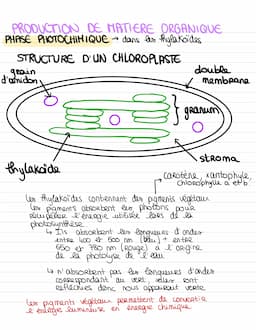 PRODUCTION DE MATIERE ORGANIQUE
PHASE PHOTOCHIMIQUE → dans les thylakoïdes
STRUCTURE D'UN CHLOROPLASTE
grain d'amidon
double membrane
granum
thylakoïde
stroma
carotène, xantophyle,
chlorophylle a et b
Les thylakoïdes contiennent des pigments végétaux
Les pigments absorbent les photons pour
récupérer l'énergie utilisée lors de la
photosynthèse
↳ Ils absorbent les longueurs d'ondes
entre 400 et 500 nm (bleu) + entre
650 et 780 nm (rouge) à l'origine
de la photolyse de l'eau
↳ n'absorbent pas les longueurs d'ondes
correspondant au vert, elles sont
réfléchies donc nous apparait verte
Les pigments végétaux permettent de convertir
l'énergie lumineuse en énergie chimique